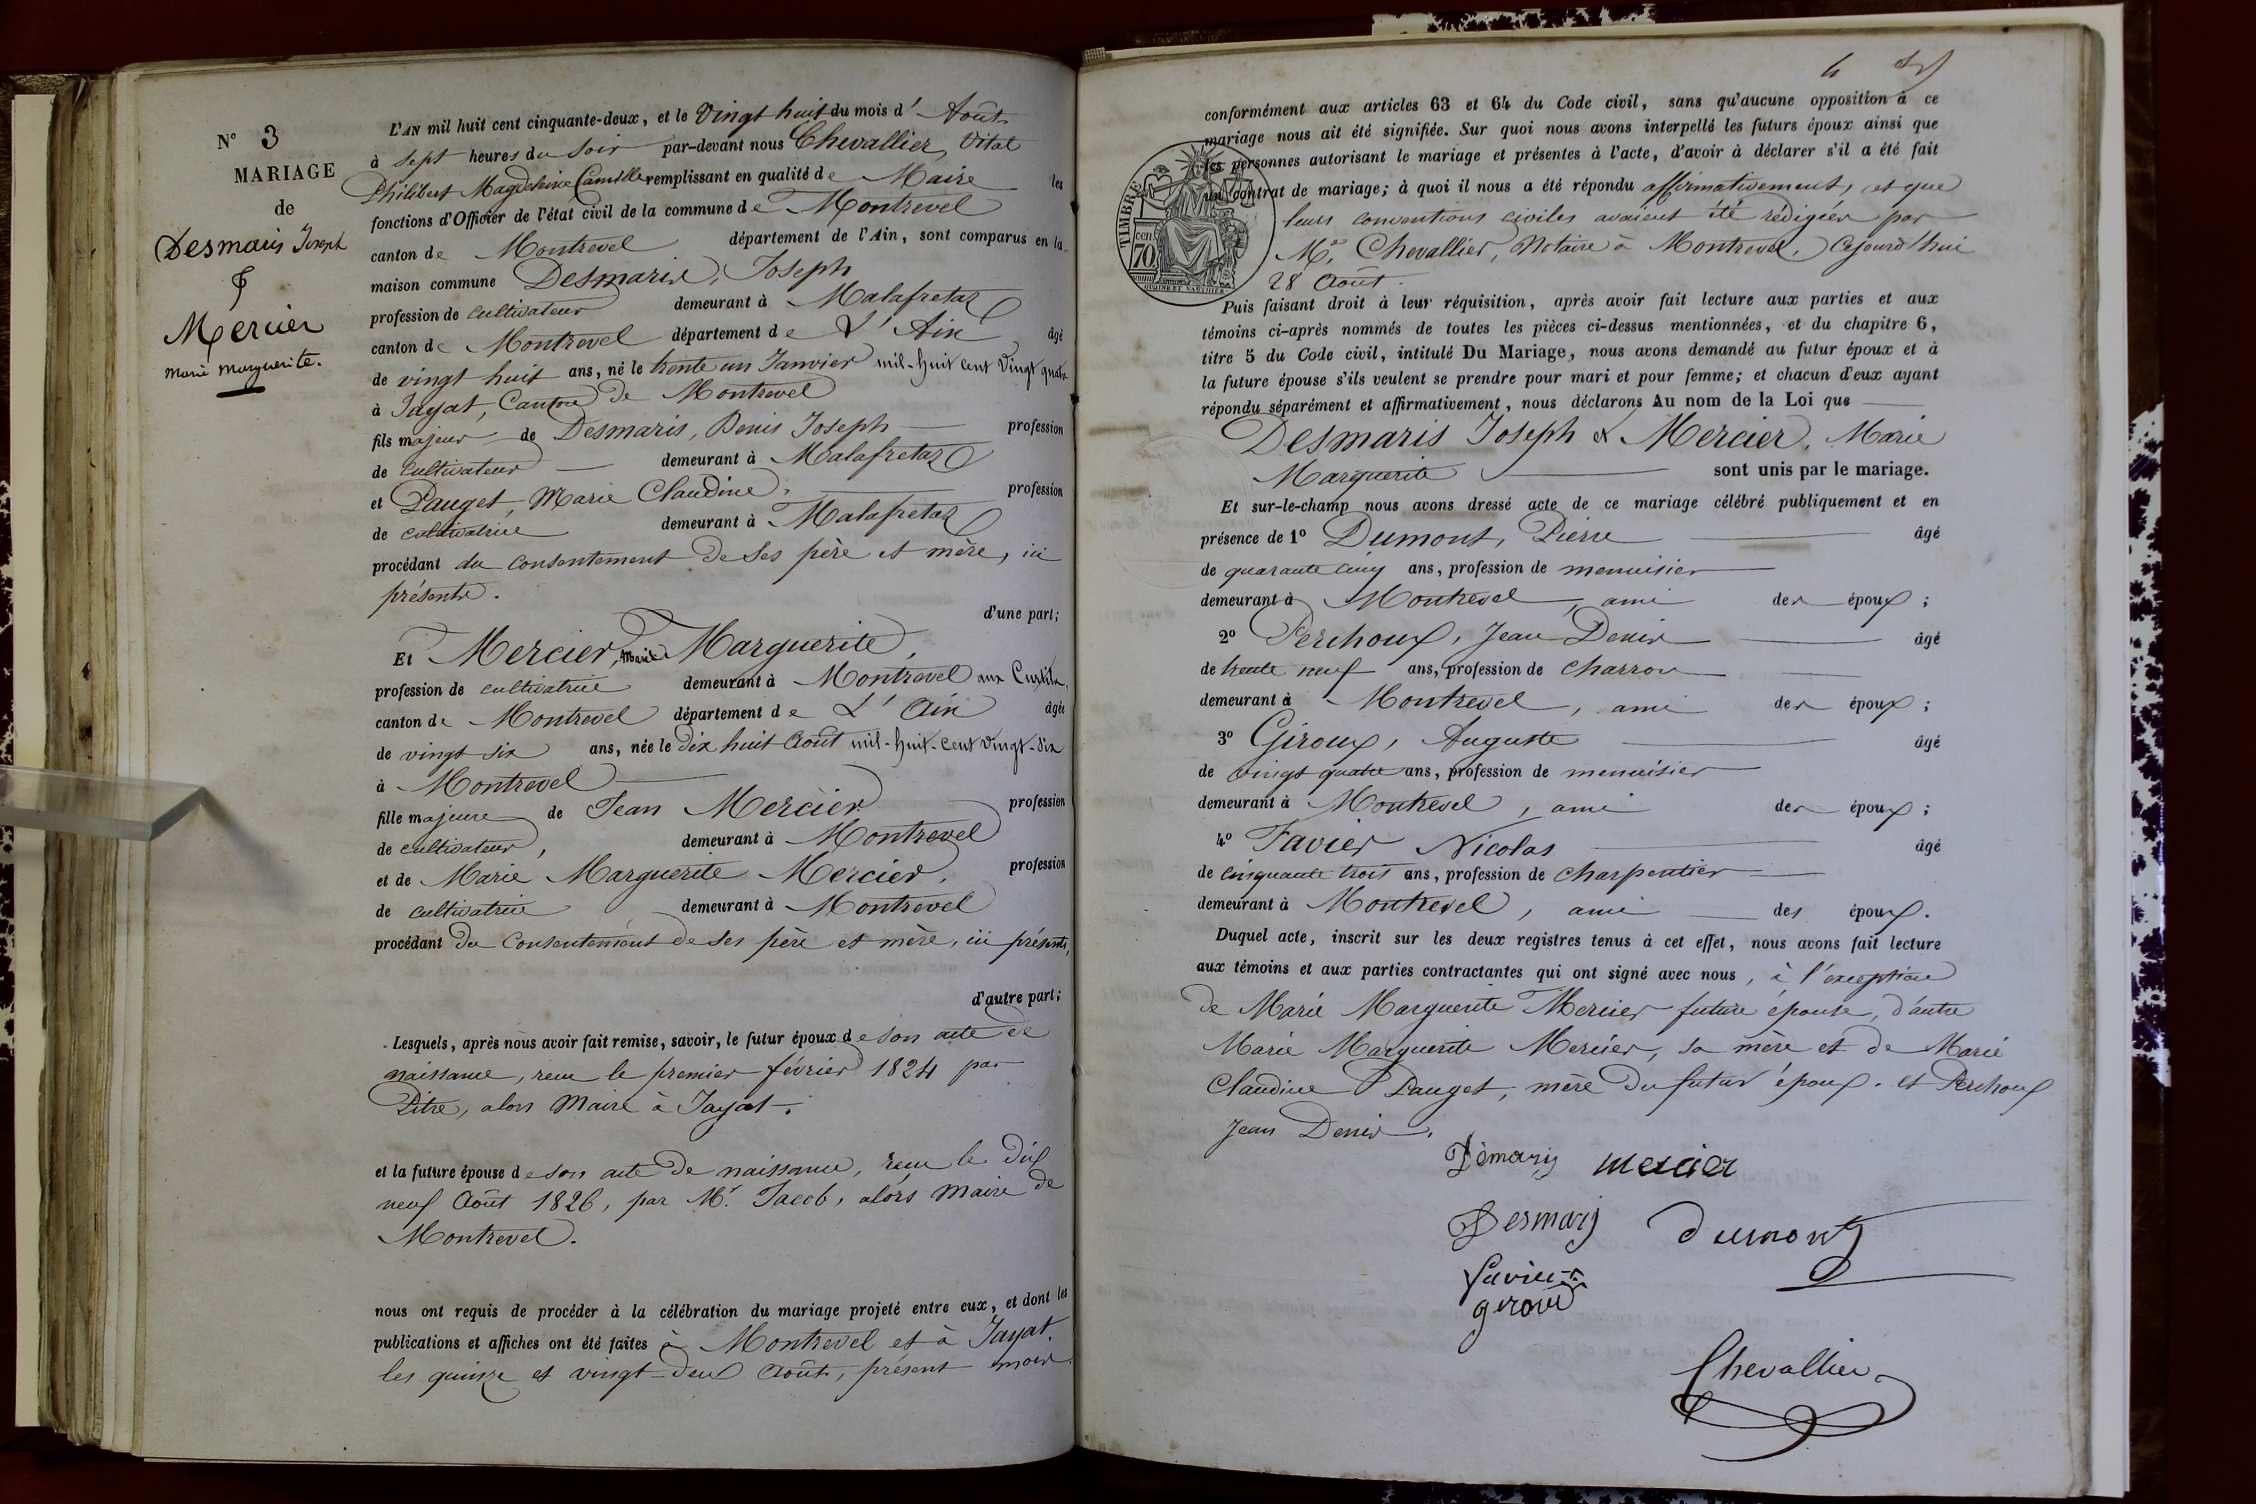 N° 3
MARIAGE
de
Desmaris Joseph
&
Mercier
Marie Marguerite.
L'AN mil huit cent cinquante-deux, et le Vingt huit du mois d' Août
à sept heures du soir par-devant nous Chevallier, Vital
Philibert Magdeleine Camille remplissant en qualité de Maire les
fonctions d'Officier de l'état civil de la commune de Montrevel
canton de Montrevel département de l'Ain, sont comparus en la
maison commune Desmaris, Joseph
profession de cultivateur demeurant à Malafretaz
canton de Montrevel département de L'Ain âgé
de vingt huit ans, né le trente un Janvier mil-huit cent Vingt quatre
à Jayat, Canton de Montrevel
fils majeur de Desmaris, Denis Joseph profession
de cultivateur demeurant à Malafretaz
et Pauget, Marie Claudine, profession
de cultivatrice demeurant à Malafretaz
procédant du consentement de ses père et mère, ici
présents.
d'une part;
Et Mercier, Marie Marguerite,
profession de cultivatrice demeurant à Montrevel aux
canton de Montrevel département de L'Ain âgée
de vingt six ans, née le dix huit Août mil-huit-cent vingt-six
à Montrevel
fille majeure de Jean Mercier profession
de cultivateur, demeurant à Montrevel
et de Marie Marguerite Mercier, profession
de cultivatrice demeurant à Montrevel
procédant du consentement de ses père et mère, ici présents,
d'autre part;
Lesquels, après nous avoir fait remise, savoir, le futur époux de son acte de
naissance, reçu le premier février 1824 par
Pitre, alors Maire à Jayat.
et la future épouse de son acte de naissance, reçu le dix
neuf Août 1826, par Mr. Jacob, alors Maire de
Montrevel.
nous ont requis de procéder à la célébration du mariage projeté entre eux, et dont les
publications et affiches ont été faites à Montrevel et à Jayat,
les quinze et vingt-deux Août, présent mois.
4
conformément aux articles 63 et 64 du Code civil, sans qu'aucune opposition à ce
mariage nous ait été signifiée. Sur quoi nous avons interpellé les futurs époux ainsi que
les personnes autorisant le mariage et présentes à l'acte, d'avoir à déclarer s'il a été fait
un contrat de mariage; à quoi il nous a été répondu affirmativement, et que
leurs conventions civiles avaient été rédigées par
Me. Chevallier, Notaire à Montrevel, Cejourd'hui
28 Août.
TIMBRE
cen
70
Puis faisant droit à leur réquisition, après avoir fait lecture aux parties et aux
témoins ci-après nommés de toutes les pièces ci-dessus mentionnées, et du chapitre 6,
titre 5 du Code civil, intitulé Du Mariage, nous avons demandé au futur époux et à
la future épouse s'ils veulent se prendre pour mari et pour femme; et chacun d'eux ayant
répondu séparément et affirmativement, nous déclarons Au nom de la Loi que
Desmaris Joseph & Mercier, Marie
Marguerite sont unis par le mariage.
Et sur-le-champ nous avons dressé acte de ce mariage célébré publiquement et en
présence de 1° Dumont, Pierre âgé
de quarante cinq ans, profession de menuisier
demeurant à Montrevel, ami des époux;
2° Perchoux, Jean Denis âgé
de trente neuf ans, profession de charron
demeurant à Montrevel, ami des époux;
3° Giroux, Auguste âgé
de vingt quatre ans, profession de menuisier
demeurant à Montrevel, ami des époux;
4° Favier Nicolas âgé
de cinquante trois ans, profession de charpentier
demeurant à Montrevel, ami des époux.
Duquel acte, inscrit sur les deux registres tenus à cet effet, nous avons fait lecture
aux témoins et aux parties contractantes qui ont signé avec nous, à l'exception
de Marie Marguerite Mercier future épouse, d'autre
Marie Marguerite Mercier, sa mère et de Marie
Claudine Pauget, mère du futur époux. et Perchoux
Jean Denis.
Démaris mercier
Desmaris dumont
favier
giroux
Chevallier